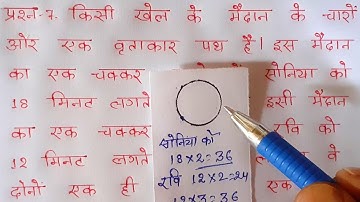 प्रश्न-7. किसी खेल के मैदान के चारों
और एक वृताकार पथ है। इस मैदान
का एक चक्कर सोनिया को
18 मिनट लगते इसी मैदान
का एक चक्कर रवि को
12 मिनट लगते वे
दोनो एक ही एक
सोनिया को
18×2=36
रवि 12×2=24
12×3=36